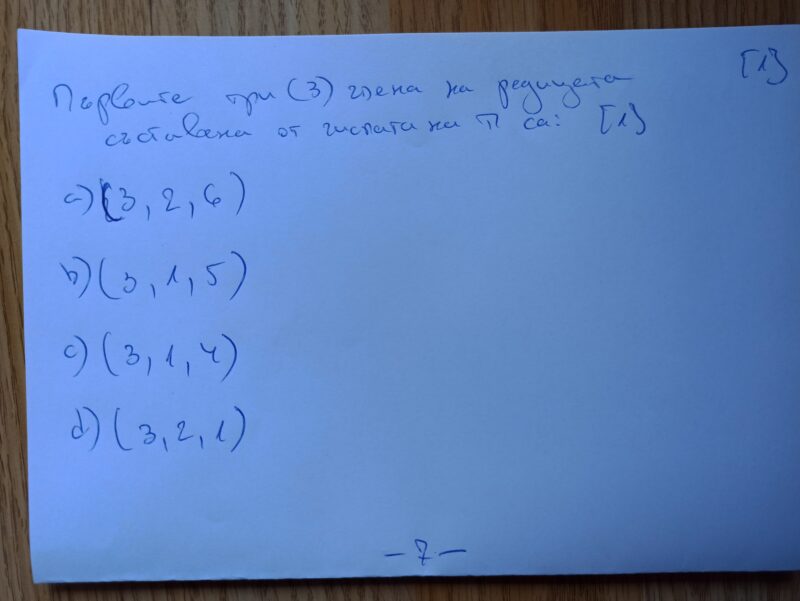 [1]
Първите три (3) члена на редицата
съставена от числата на π са: [1]
a) (3, 2, 6)
b) (3, 1, 5)
c) (3, 1, 4)
d) (3, 2, 1)
- 7 -